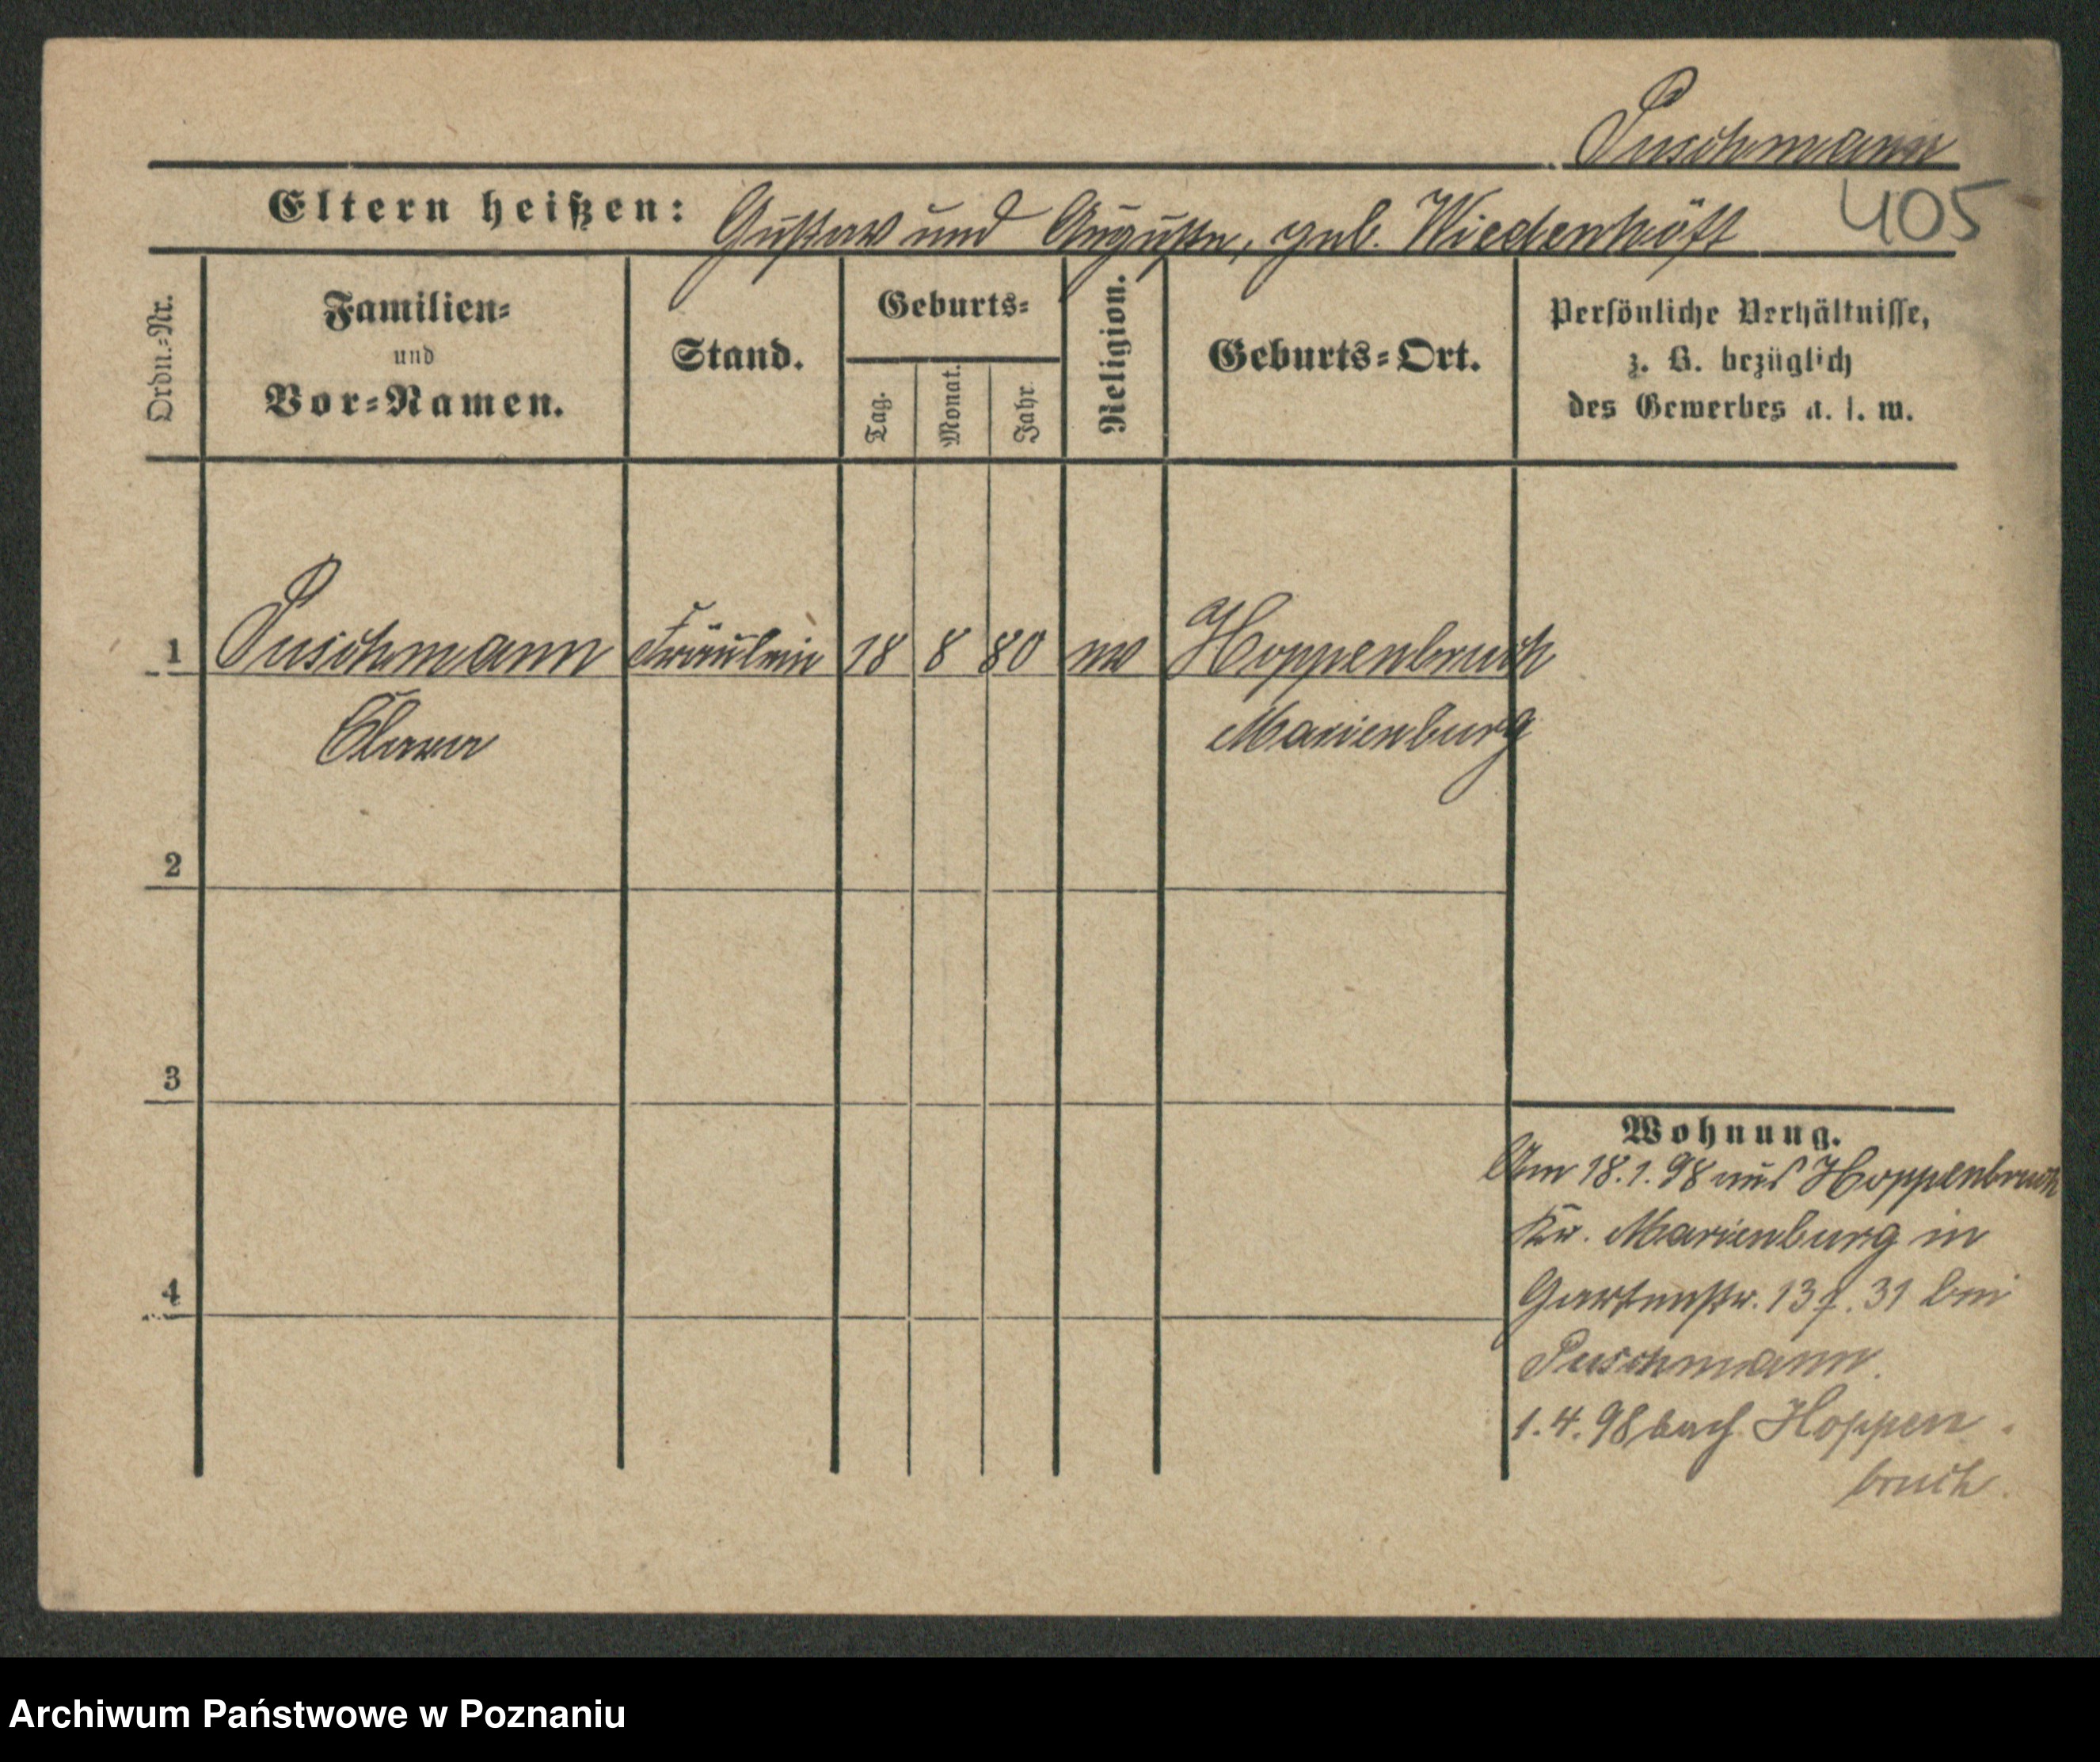 Puschmann
405
Eltern heißen: Gustav und Auguste, geb. Wiedenhöft
Ordn.-Nr.
Familien-
und
Vor-Namen.
Stand.
Geburts-
Tag.
Monat.
Jahr.
Religion.
Geburts-Ort.
Persönliche Verhältnisse,
z. B. bezüglich
des Gewerbes u. s. w.
1 Puschmann Fräulein 18 8 80 ev Hoppenbruch
Clara Marienburg
2
3
4
Wohnung.
Am 18.1.98 aus Hoppenbruch
Kr. Marienburg in
Gartenstr. 13 f. 31 bei
Puschmann.
1.4.98 nach Hoppen
bruch.
Archiwum Państwowe w Poznaniu